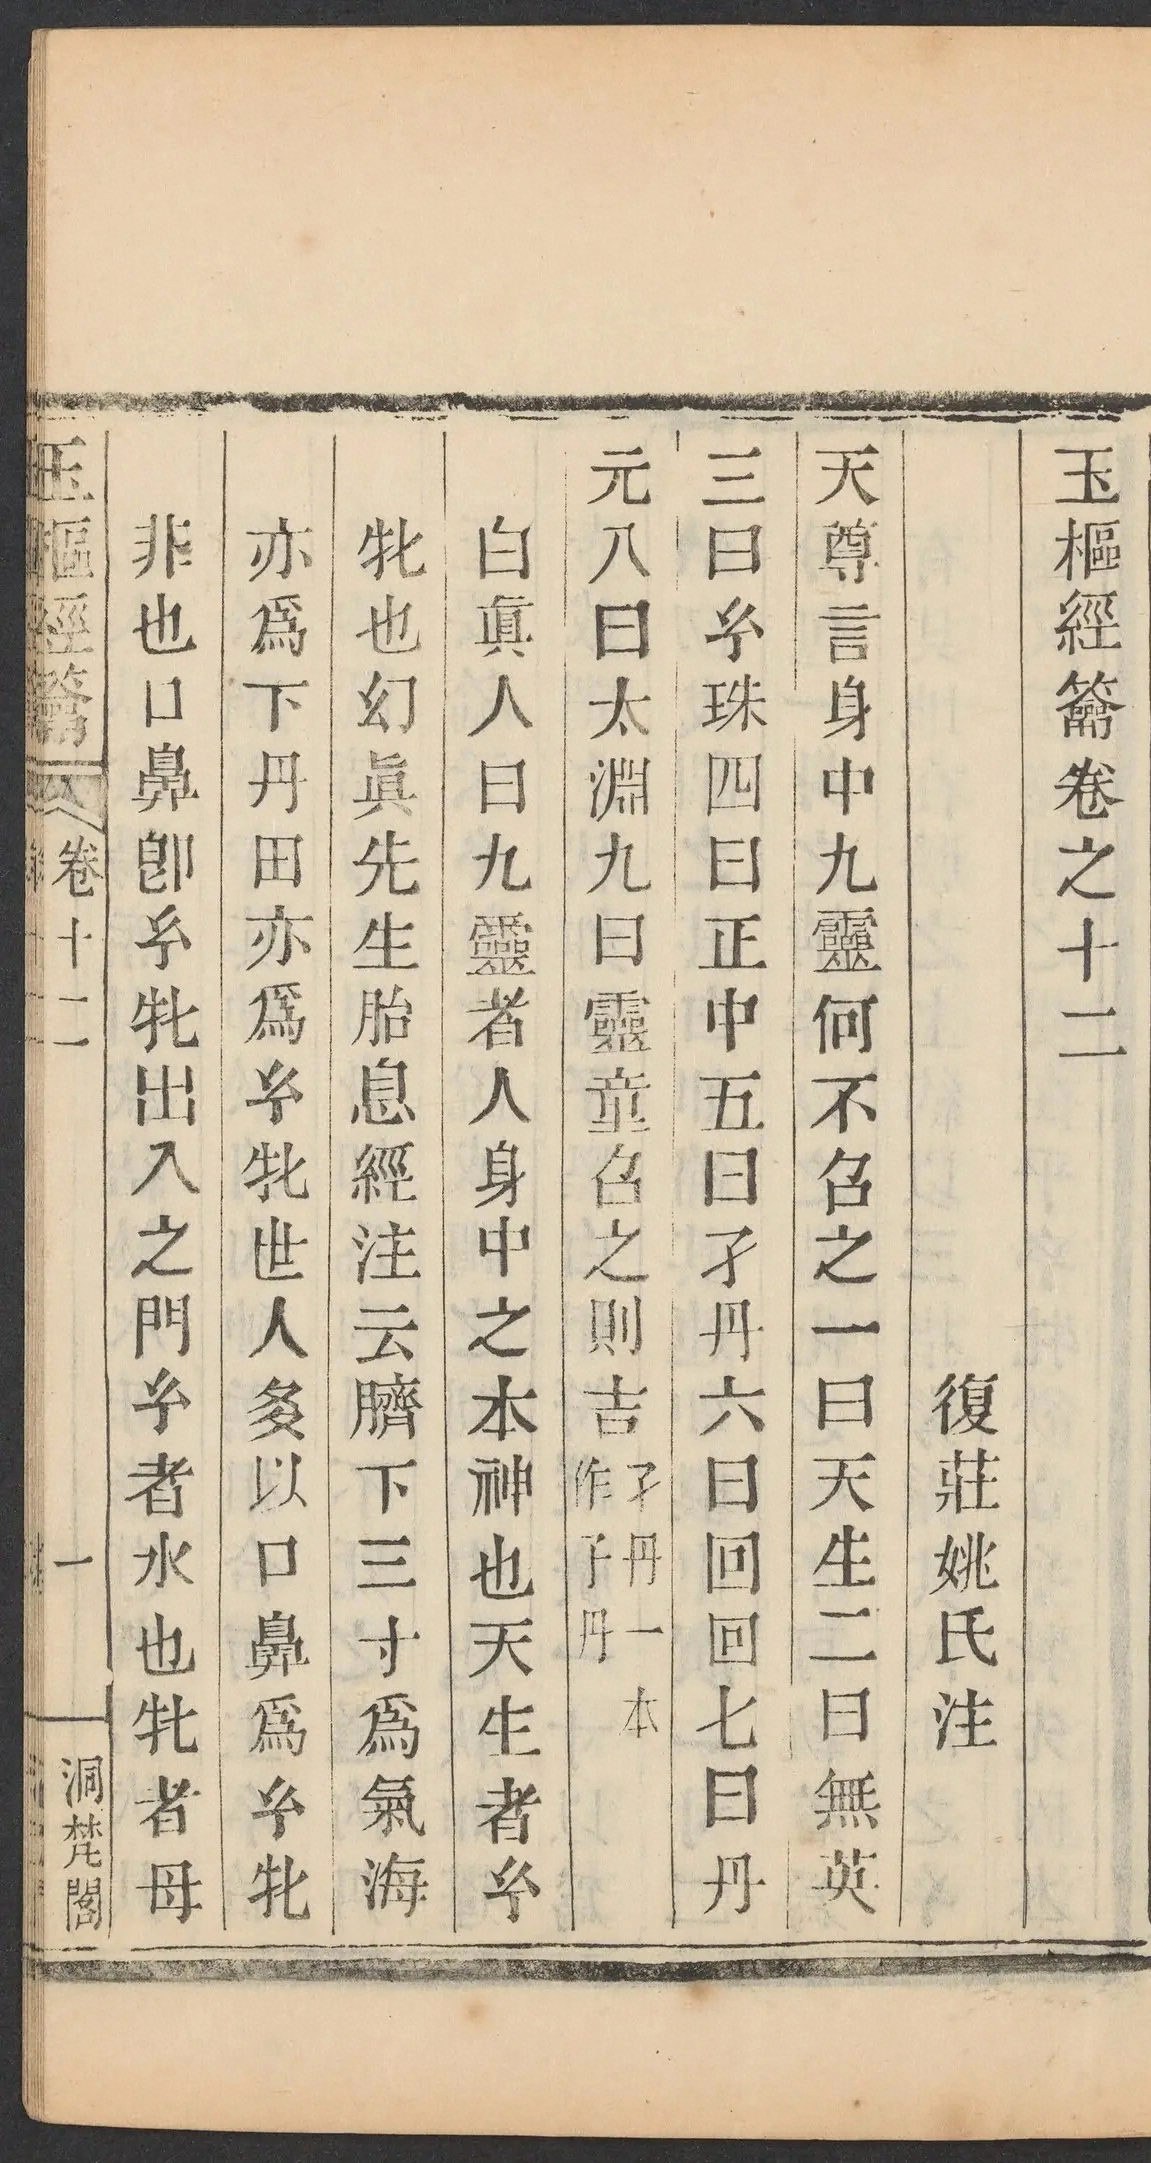 玉樞經籥卷之十二
復莊姚氏注
天尊言身中九靈何不召之一曰天生二曰無英
三曰玄珠四曰正中五曰孑丹六曰回回七曰丹
元八曰太淵九曰靈童召之則吉孑丹一本作子丹
白眞人曰九靈者人身中之本神也天生者玄
牝也幻眞先生胎息經注云臍下三寸爲氣海
亦爲下丹田亦爲玄牝世人夛以口鼻爲玄牝
非也口鼻卽玄牝出入之門玄者水也牝者母
玉樞經籥 卷十二 一 洞梵閣